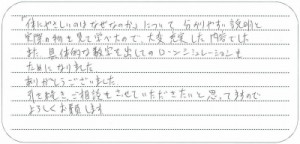 「体にやさしいのはなぜなのか」について 分かりやすい説明と
実際の物を見て学べたので、大変充実した内容でした
また、具体的な数字を出してのローンシュミレーションも
ためになりました
ありがとうございました
引き続きご相談をさせていただきたいと思ってますので
よろしくお願します